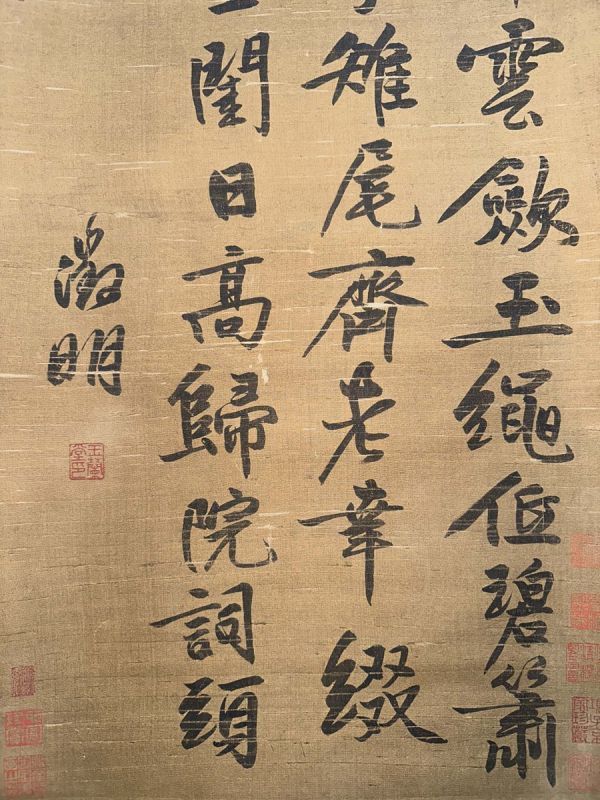 雲斂玉繩低碧簫
雉尾齊老幸綴
閨日高歸院詞頭
徵明
玉蘭
堂印